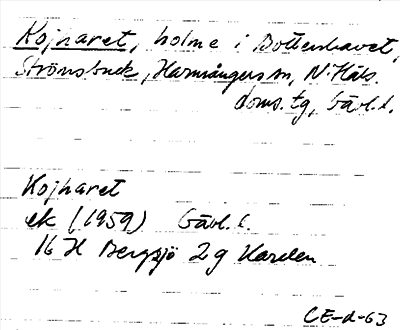 Kojharet, holme i Bottenhavet,
Strömsbruk, Harmångers sn, N. Häls.
doms. tg, Gävl. l.
Kojharet
ek (1959) Gävl. l.
16 H Bergsjö 2 g Harden
CE-d-63